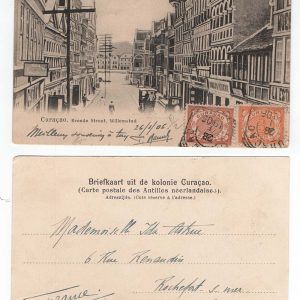 Curaçao. Breede Street, Willemstad
26/5/06
Meilleur souvenir à
Briefkaart uit de kolonie Curaçao.
(Carte postale des Antilles néerlandaises.)
Adreszijde. (Côté réservé à l'adresse.)
Mademoiselle Ida
6 Rue Renaudin
Rochefort s. mer
France